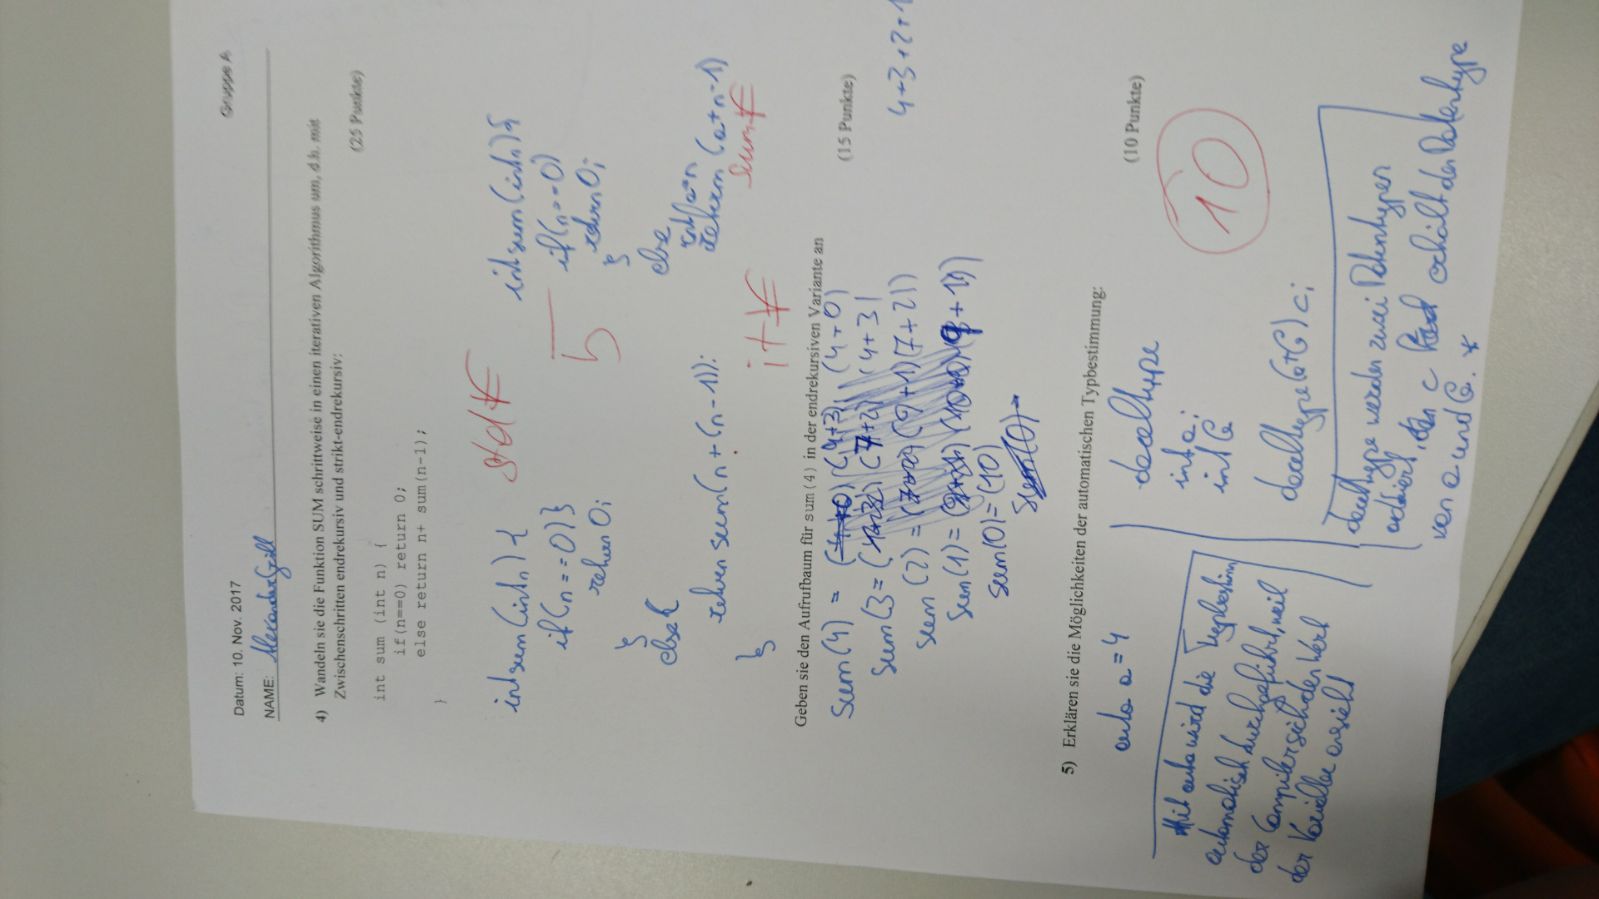 Gruppe A
Datum: 10. Nov. 2017
NAME: Alexander Grill
4) Wandeln sie die Funktion SUM schrittweise in einen iterativen Algorithmus um, d.h. mit
Zwischenschritten endrekursiv und strikt-endrekursiv:
(25 Punkte)
int sum (int n) {
if(n==0) return 0;
else return n+ sum(n-1);
}
int sum(int n) {
if(n==0)}
return 0;
}
else{
return sum(n+(n-1));
}
stdF
5
int sum(int n){
if(n==0)
return 0;
}
else
int a=n
return (a+n-1)
sumF
itF
Geben sie den Aufrufbaum für sum(4) in der endrekursiven Variante an
(15 Punkte)
sum(4) = (4+3) (4+0)
sum(3= (7+2) (4+3)
sum(2) = (9+1) (7+2))
sum(1) = (9+1))
sum(0)=(10)
sum(0)
4+3+2+1
5) Erklären sie die Möglichkeiten der automatischen Typbestimmung:
(10 Punkte)
10
auto a=4
Mit auto wird die Typbestimm
automatisch durchgeführt, weil
der Compiler sich den Wert
der Variable ansieht
decltype
int a;
int b;
decltype(a+b) c;
decltype werden zwei Datentypen
addiert, c erhält den Datentype
von a und b. *